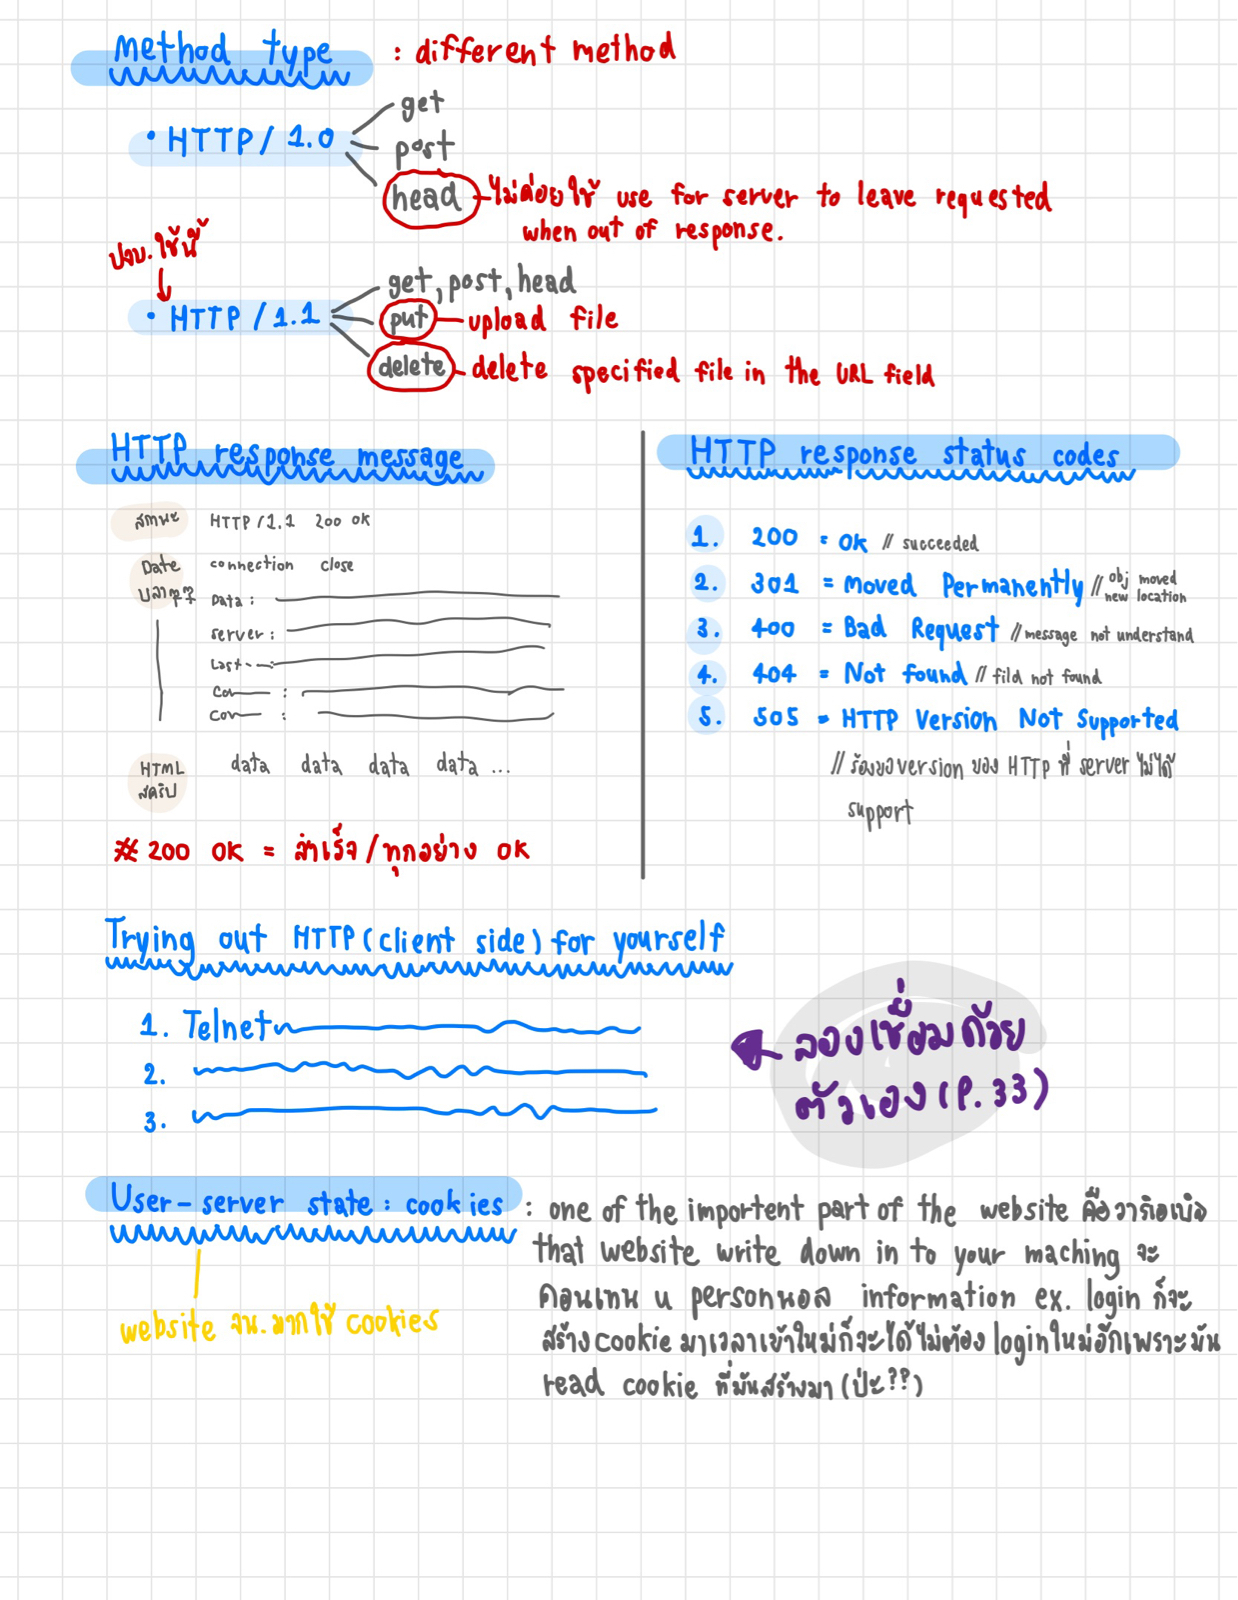 Method type : different method
• HTTP/1.0
get
post
head
ไม่ค่อยใช้ use for server to leave requested
when out of response.
ปจบ.ใช้นี้
• HTTP/1.1
get, post, head
put
upload file
delete
delete specified file in the URL field
HTTP response message
สถานะ HTTP/1.1 200 OK
Date connection close
บลาๆๆ Data :
server :
Last-
Con :
Con :
HTML data data data data ...
สคริป
# 200 OK = สำเร็จ/ทุกอย่าง OK
HTTP response status codes
1. 200 = OK // succeeded
2. 301 = Moved Permanently // obj moved
new location
3. 400 = Bad Request // message not understand
4. 404 = Not found // fild not found
5. 505 = HTTP Version Not Supported
// ร้องขอ version ของ HTTP ที่ server ไม่ได้
support
Trying out HTTP (client side) for yourself
1. Telnet
2.
3.
ลองเชื่อมด้วย
ตัวเอง (P.33)
User-server state : cookies
website จน.มากใช้ cookies
: one of the importent part of the website คือ
that website write down in to your maching จะ
คอนเทน u personนอล information ex. login ก็จะ
สร้าง cookie มาเวลาเข้าใหม่ก็จะได้ไม่ต้อง login ใหม่อีกเพราะมัน
read cookie ที่มันสร้างมา (ป่ะ??)